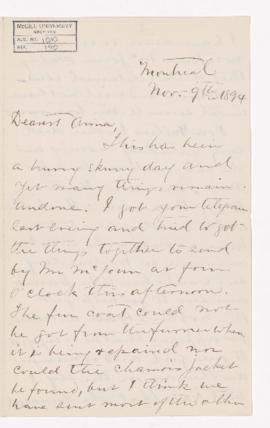 McGILL UNIVERSITY
ARCHIVES
ACC. NO. 1010
REF.
Montreal
Nov. 9th 1894
Dearest Anna,
This has been
a hurry skurry day and
yet many things remain
undone. I got your telegram
last evening and tried to get
the things together to send
by Mr. at four
o'clock this afternoon.
The fur coat could not
be got from the furrier where
it is being repaired nor
could the chamois jacket
be found, but I think we
have sent most of the other